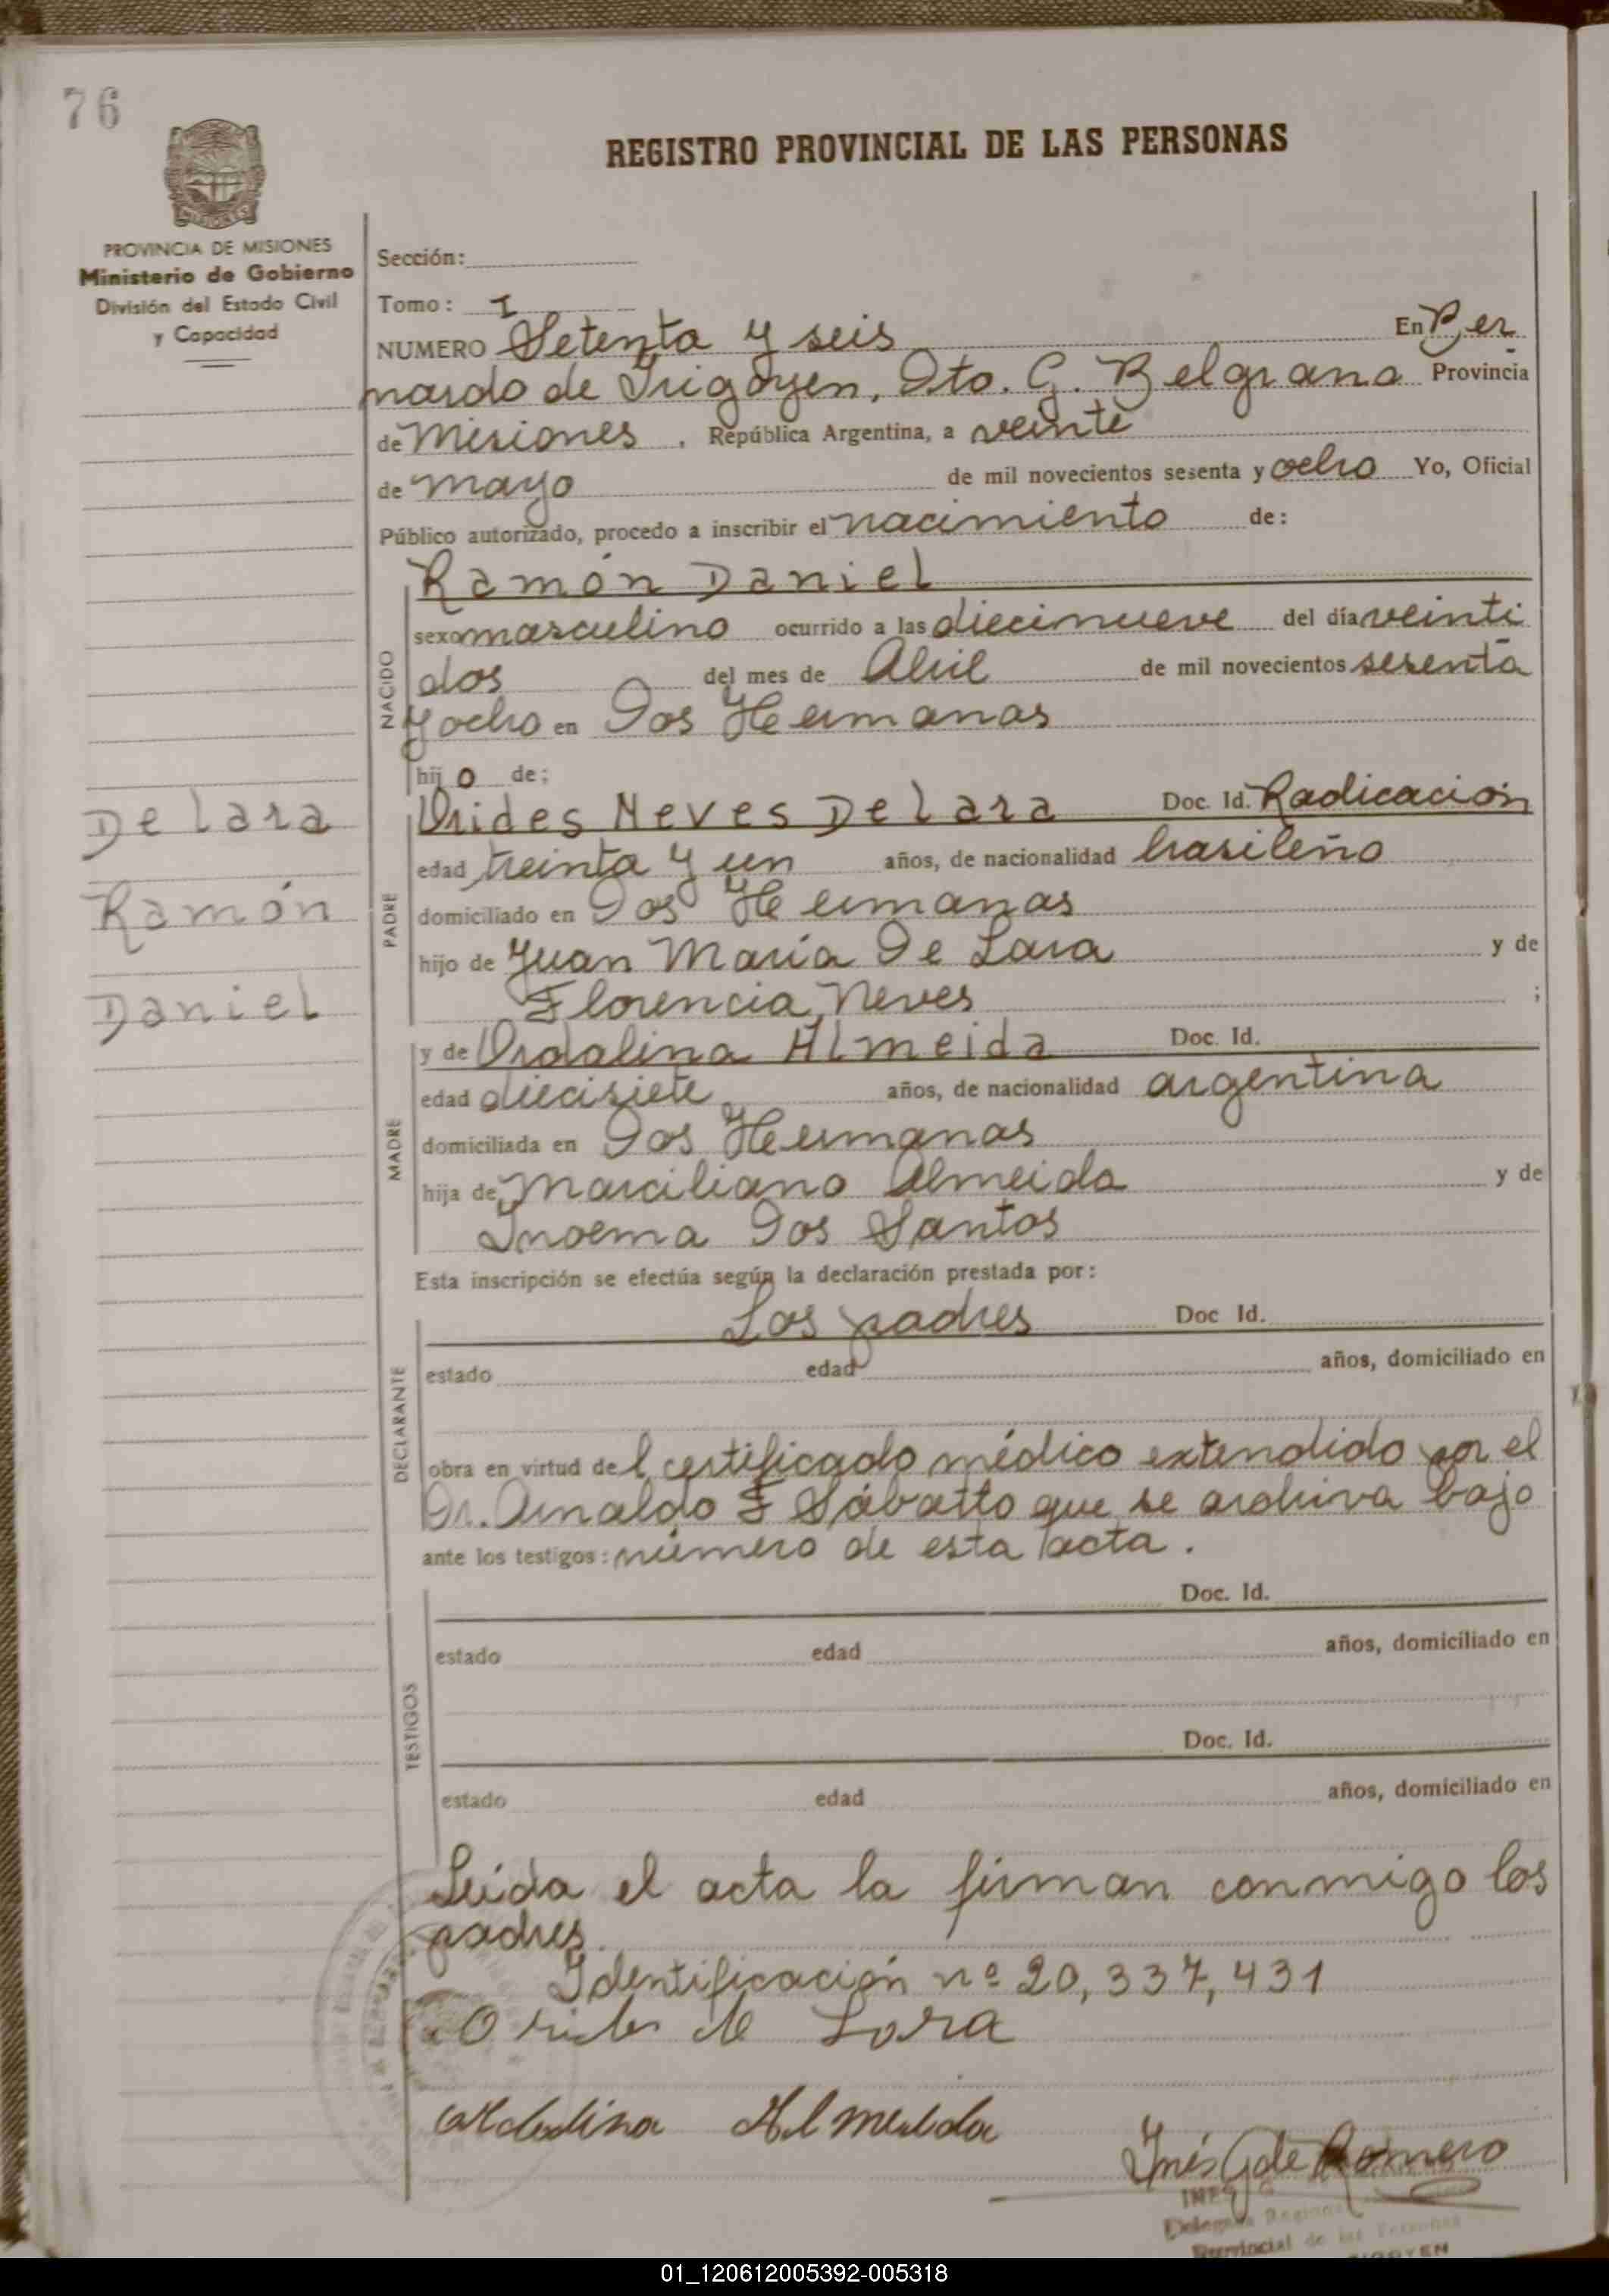 76
REGISTRO PROVINCIAL DE LAS PERSONAS
MISIONES
PROVINCIA DE MISIONES
Ministerio de Gobierno
División del Estado Civil
y Capacidad
Sección:
Tomo: I
NUMERO Setenta y seis En Ber
nardo de Irigoyen, Dto. G. Belgrano Provincia
de Misiones, República Argentina, a veinte
de mayo de mil novecientos sesenta y ocho Yo, Oficial
Público autorizado, procedo a inscribir el nacimiento de:
Ramón Daniel
NACIDO
sexo masculino ocurrido a las diecinueve del día veinti
dos del mes de Abril de mil novecientos sesenta
y ocho en Dos Hermanas
hijo de:
De Lara
Ramón
Daniel
PADRE
Orides Neves De Lara Doc. Id. Radicación
edad treinta y un años, de nacionalidad brasileño
domiciliado en Dos Hermanas
hijo de Juan María De Lara y de
Florencia Neves ;
MADRE
y de Ordalina Almeida Doc. Id.
edad diecisiete años, de nacionalidad argentina
domiciliada en Dos Hermanas
hija de Marciliano Almeida y de
Inoema Dos Santos
Esta inscripción se efectúa según la declaración prestada por:
DECLARANTE
Los padres Doc Id.
estado edad años, domiciliado en
obra en virtud del certificado médico extendido por el
Dr. Arnaldo F Sábatto que se archiva bajo
ante los testigos: número de esta acta.
TESTIGOS
Doc. Id.
estado edad años, domiciliado en
Doc. Id.
estado edad años, domiciliado en
Leída el acta la firman conmigo los
padres.
Identificación nº 20,337,431
Orides de Lara
Almeida
Inés G de Romero
INES G
Delegada Regional
Provincial de las Personas
IGOYEN
01_120612005392-005318